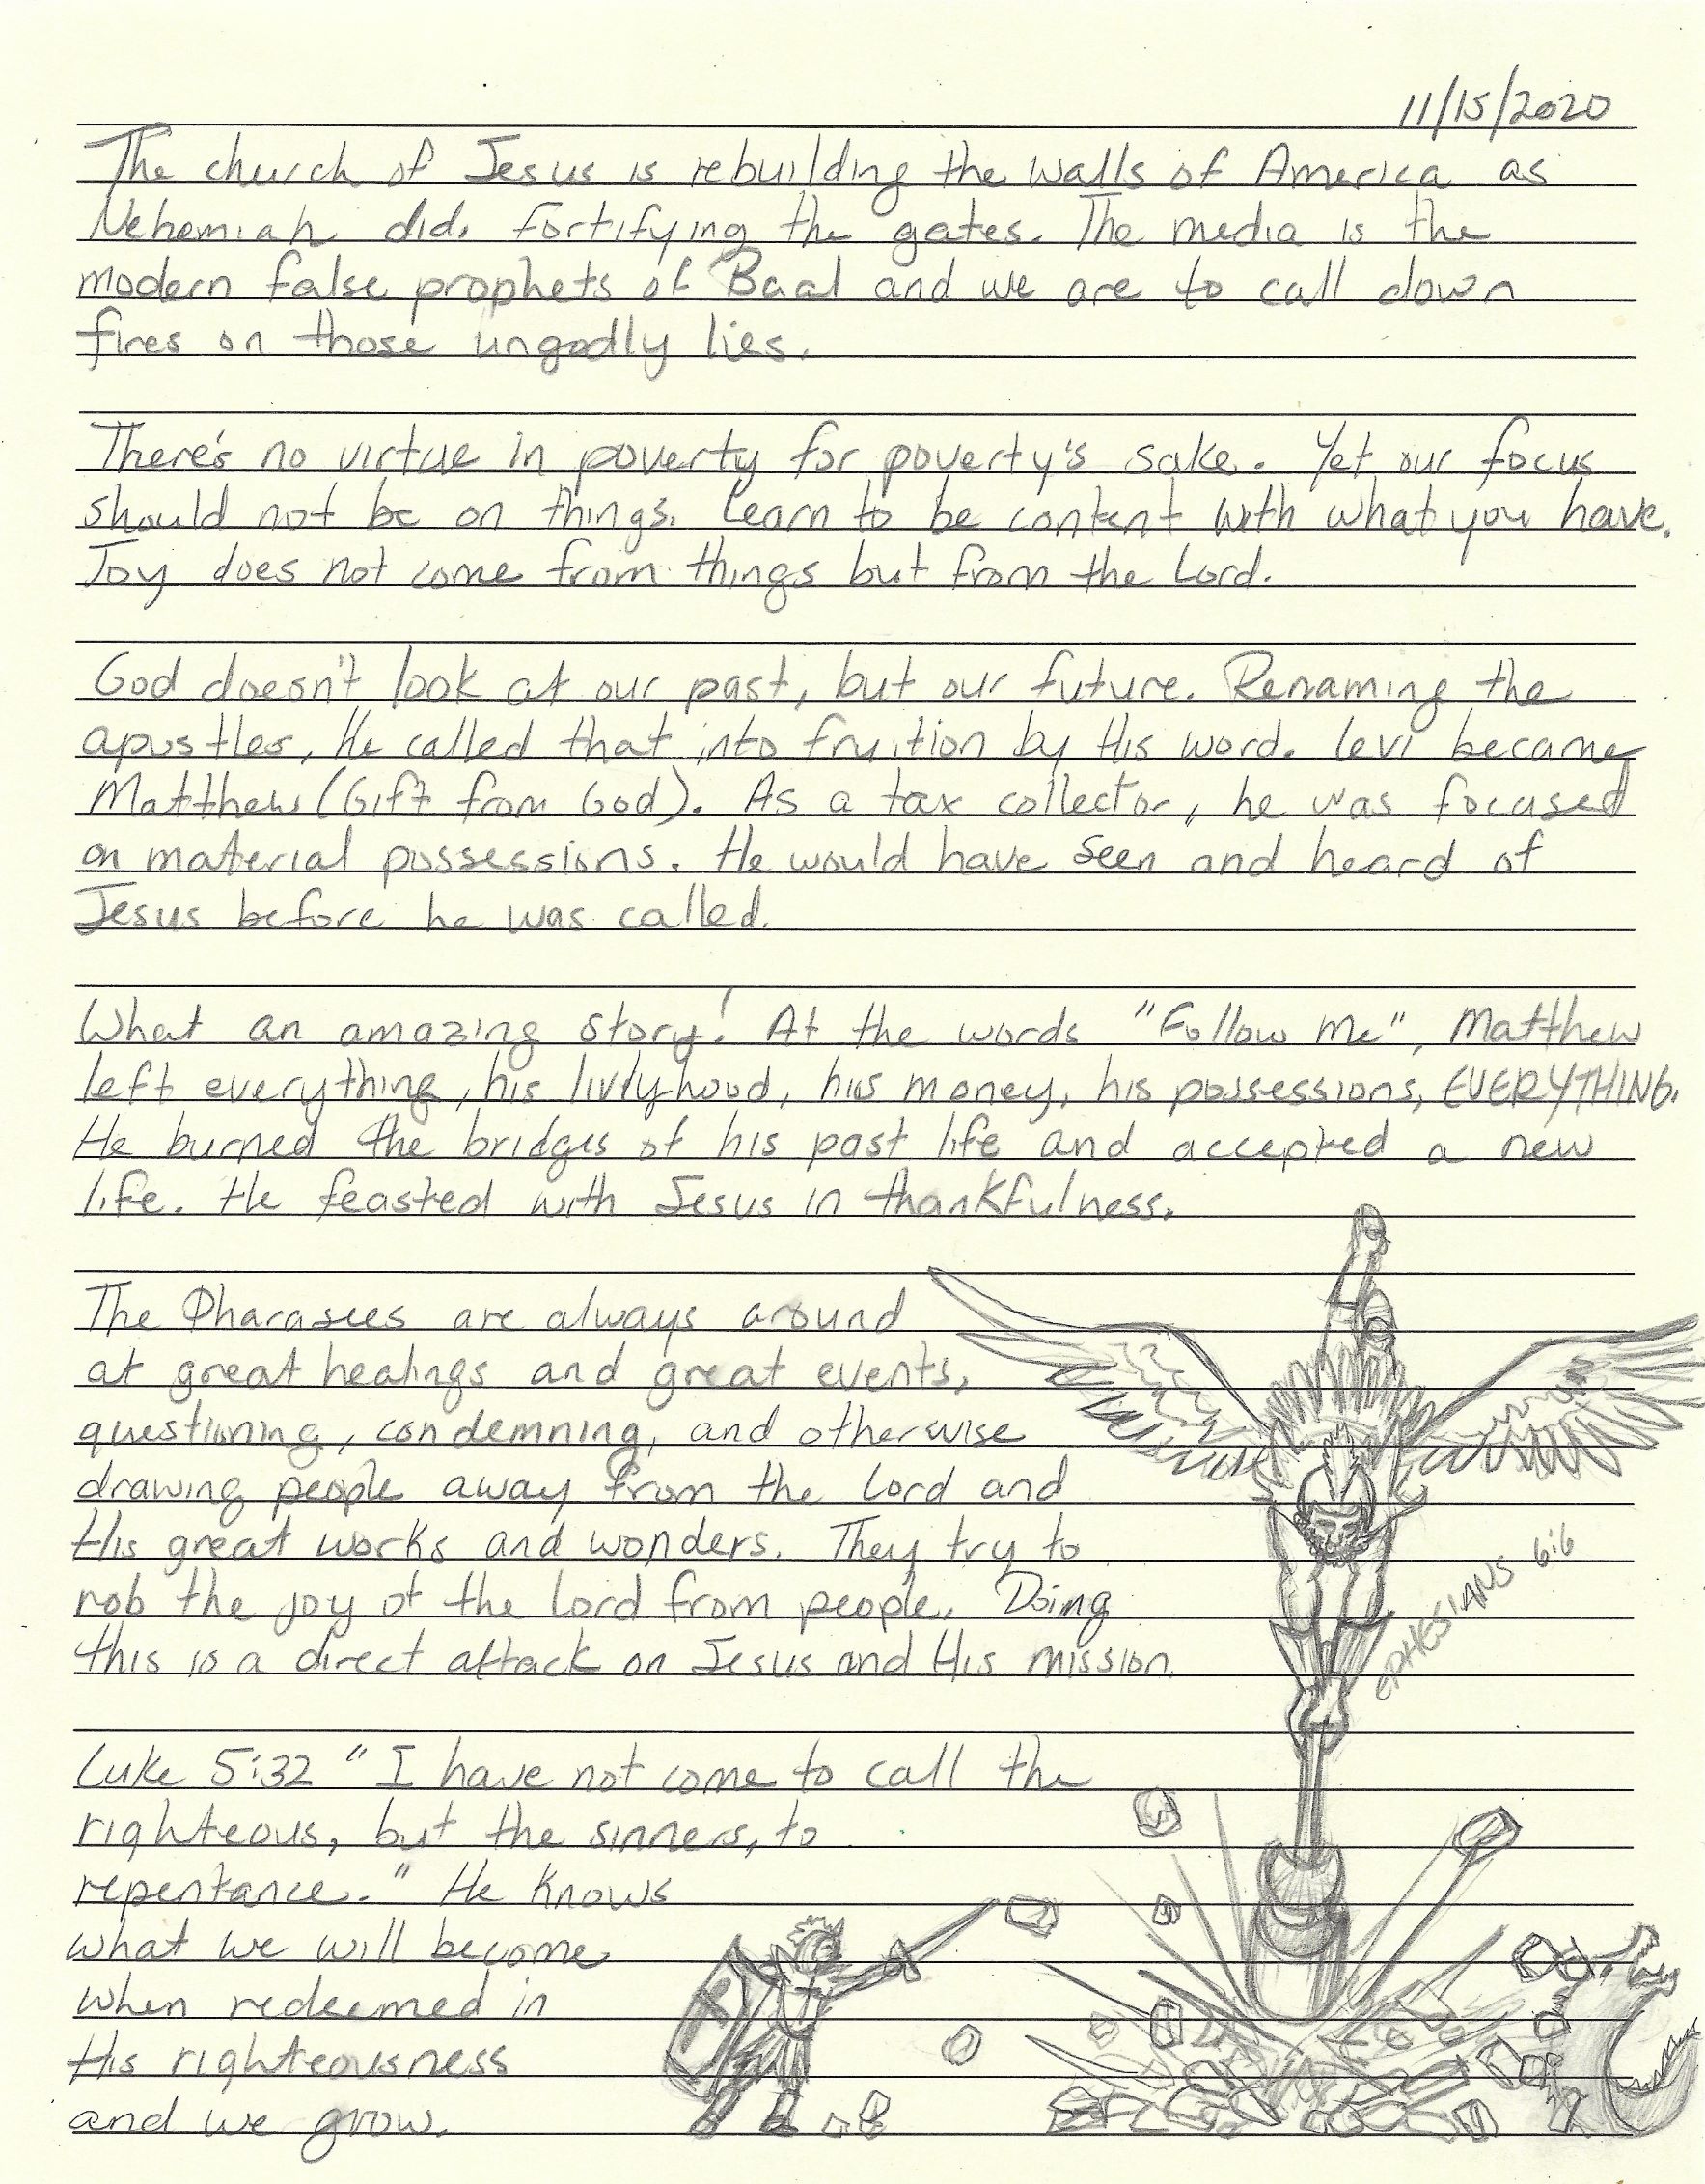 11/15/2020
The church of Jesus is rebuilding the walls of America as
Nehemiah did. Fortifying the gates. The media is the
modern false prophets of Baal and we are to call down
fires on those ungodly lies.
There's no virtue in poverty for poverty's sake. Yet our focus
should not be on things. Learn to be content with what you have.
Joy does not come from things but from the Lord.
God doesn't look at our past, but our future. Renaming the
apostles, He called that into fruition by His word. Levi became
Matthew (Gift from God). As a tax collector, he was focused
on material possessions. He would have seen and heard of
Jesus before he was called.
What an amazing story! At the words "Follow Me", Matthew
left everything, his livlyhood, his money, his possessions, EVERYTHING.
He burned the bridges of his past life and accepted a new
life. He feasted with Jesus in thankfulness.
The Pharasees are always around
at great healings and great events,
questioning, condemning, and otherwise
drawing people away from the Lord and
His great works and wonders. They try to
rob the joy of the Lord from people. Doing
this is a direct attack on Jesus and His mission.
EPHESIANS 6:6
Luke 5:32 "I have not come to call the
righteous, but the sinners, to
repentance." He knows
what we will become
when redeemed in
His righteousness
and we grow.